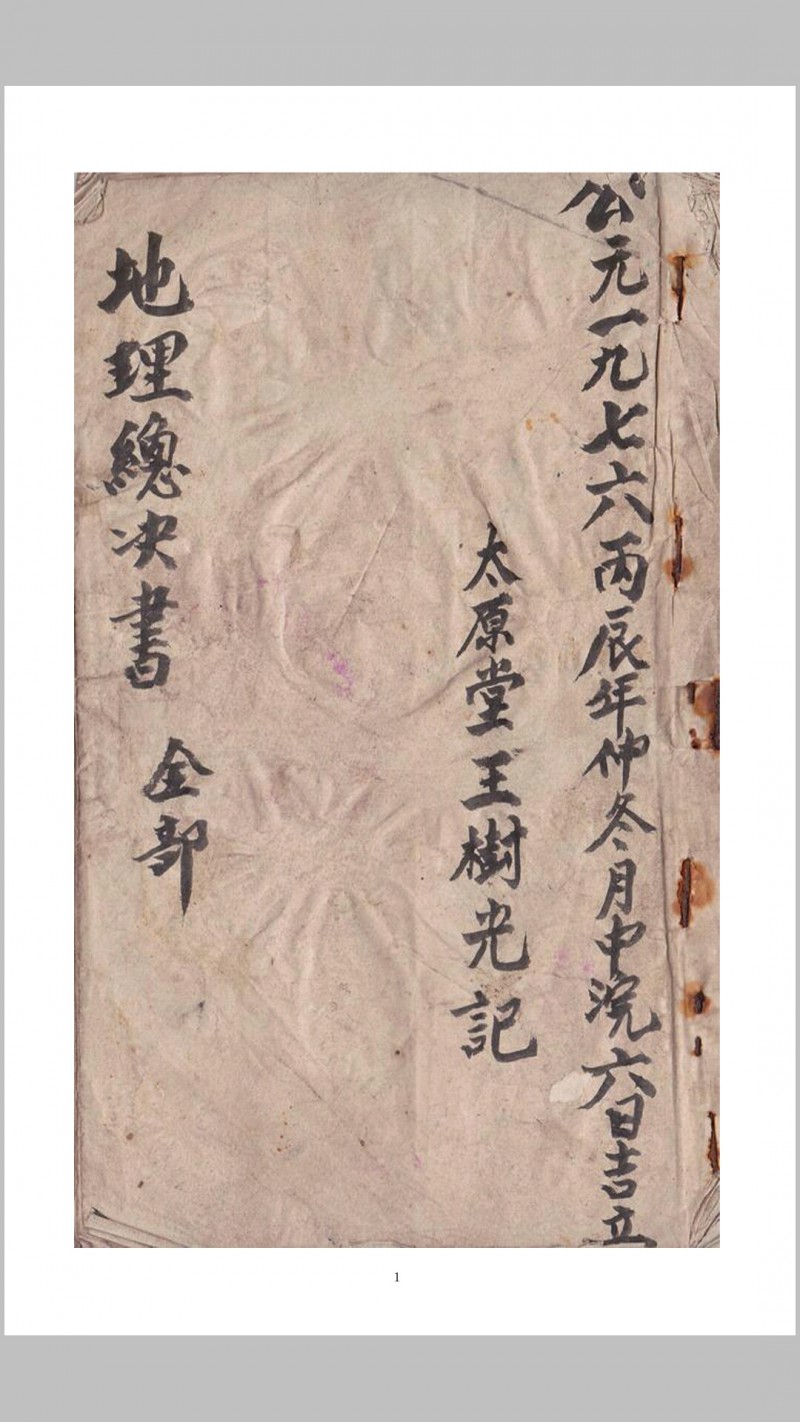 公元一九七六丙辰年仲冬月中浣六日吉立
太原堂王樹光記
地理總决書 全部
1